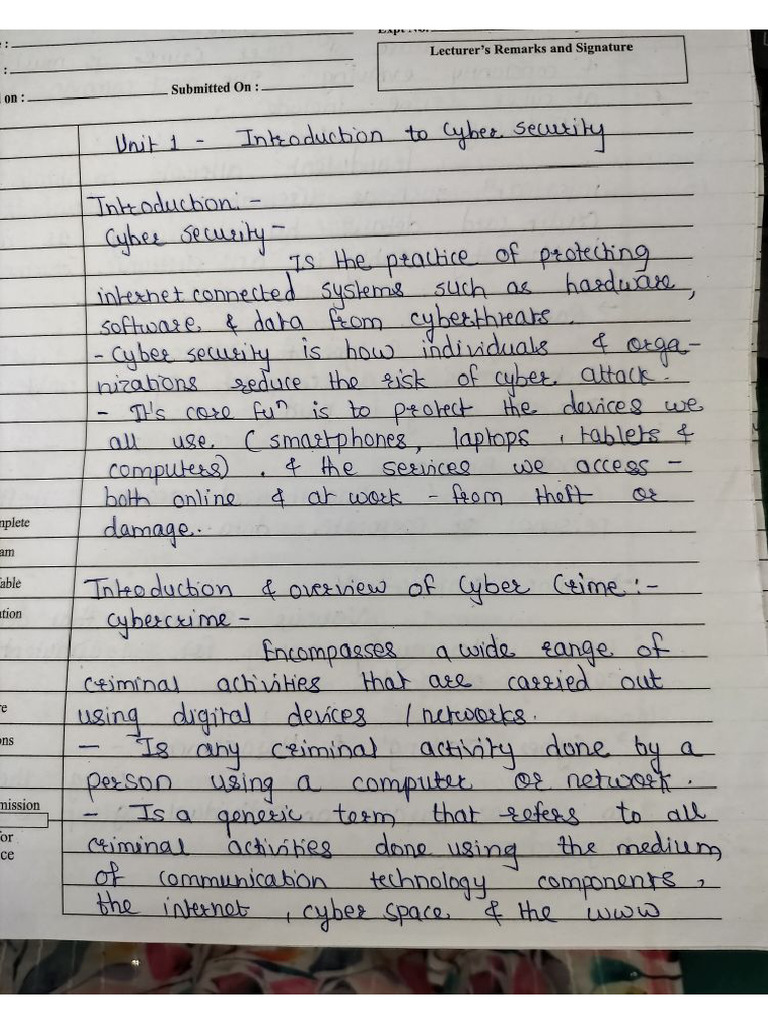 Expt No.
e :
Lecturer's Remarks and Signature
:
on :
Submitted On :
Unit 1 - Introduction to Cyber Security
Introduction:-
Cyber Security-
Is the practice of protecting
internet connected systems such as hardware,
software & data from cyberthreats.
- Cyber security is how individuals & orga-
nizations reduce the risk of cyber attack.
- It's core fuⁿ is to protect the devices we
all use (smartphones, laptops, tablets &
computers), & the services we access -
both online & at work - from theft or
mplete
damage.
am
able
Introduction & overview of Cyber Crime:-
ation
cybercrime-
Encompasses a wide range of
criminal activities that are carried out
re
using digital devices / networks.
ons
- Is any criminal activity done by a
person using a computer or network.
mission
- Is a generic term that refers to all
for
criminal activities done using the medium
ce
of communication technology components,
the internet, cyber space & the www